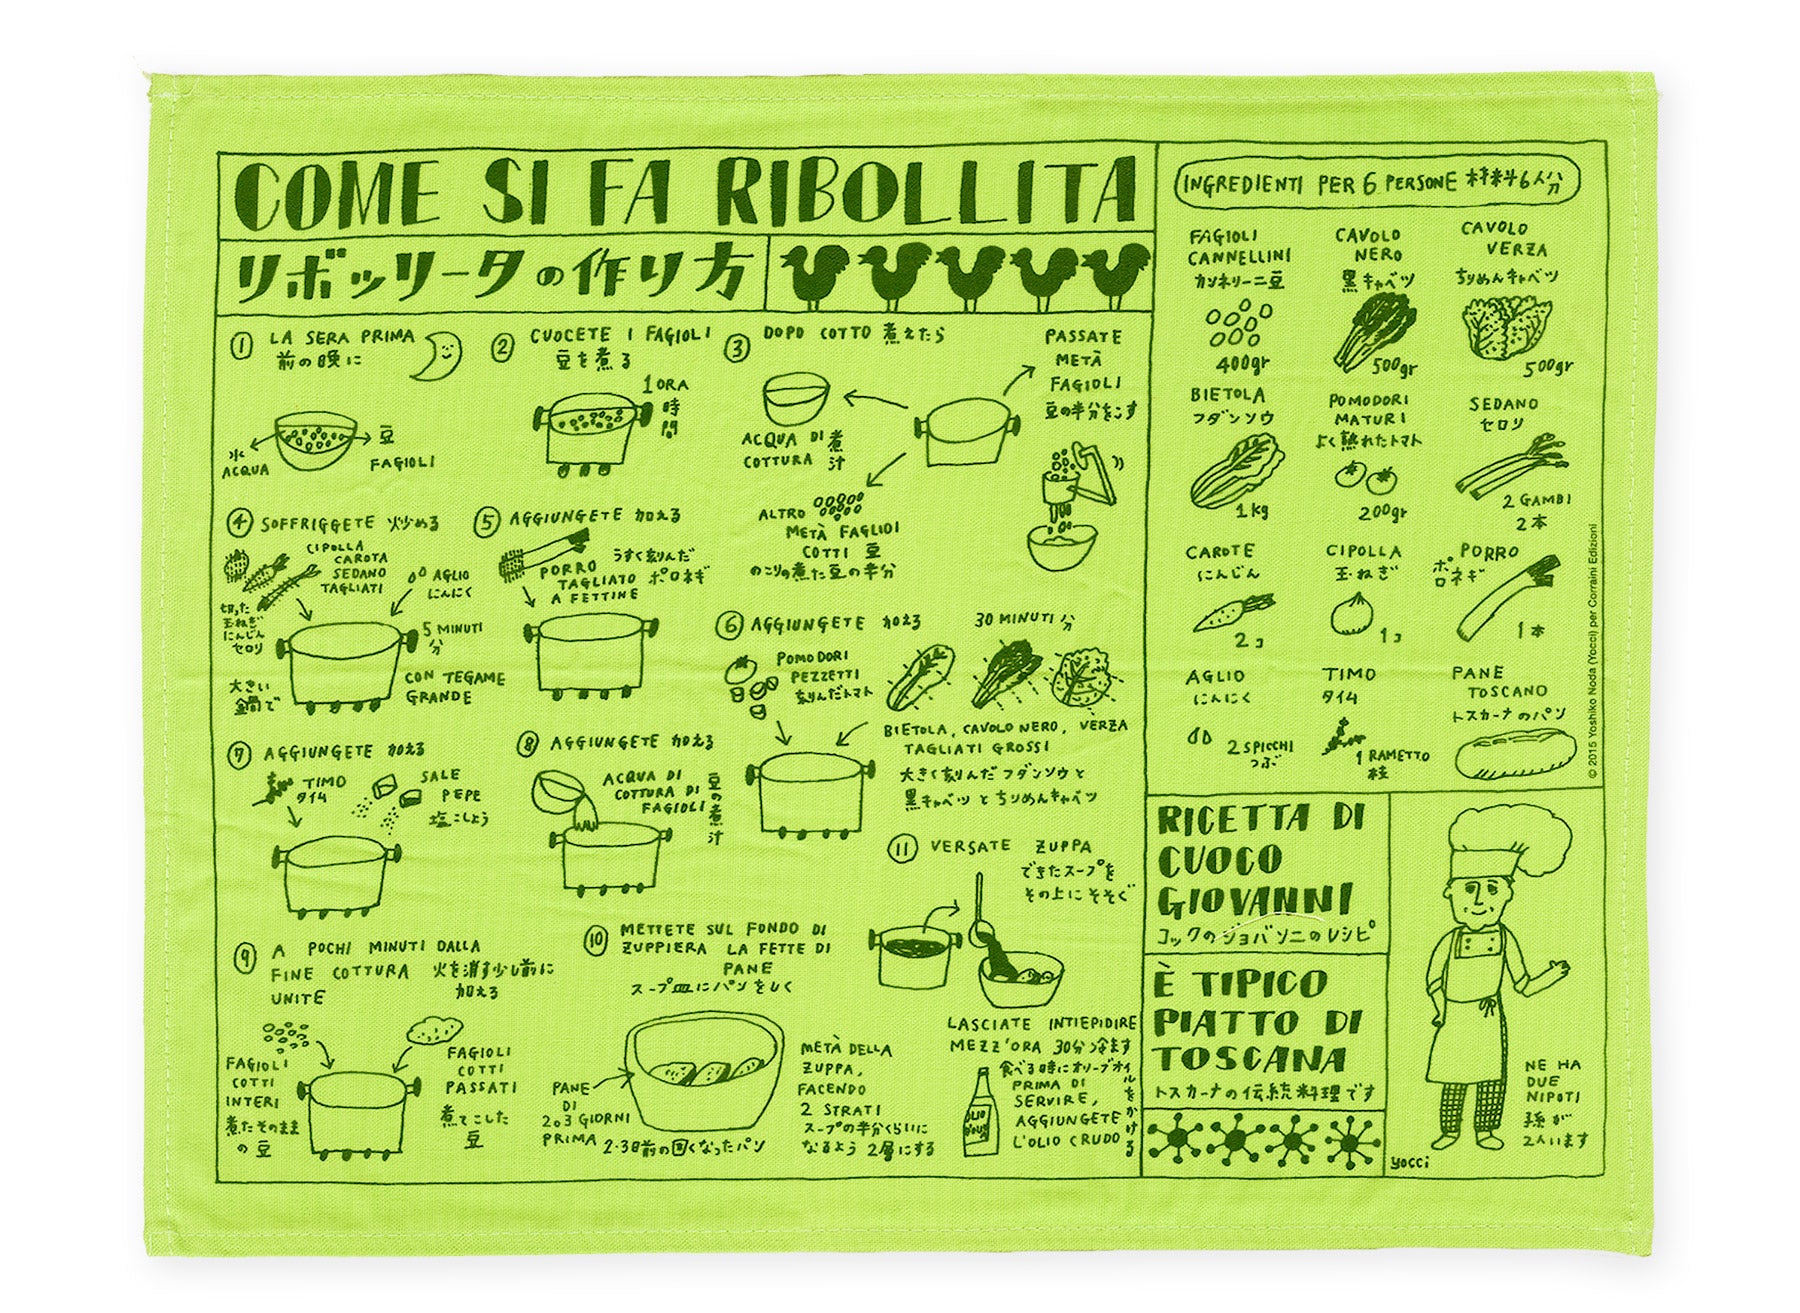 COME SI FA RIBOLLITA
リボッリータの作り方
① LA SERA PRIMA
前の晩に
水
ACQUA
豆
FAGIOLI
② CUOCETE I FAGIOLI
豆を煮る
1 ORA
時間
③ DOPO COTTO 煮えたら
ACQUA DI
COTTURA
煮汁
PASSATE
METÀ
FAGIOLI
豆の半分をこす
ALTRO
METÀ FAGLIOI
COTTI 豆
のこりの煮た豆の半分
④ SOFFRIGGETE 炒める
CIPOLLA
CAROTA
SEDANO
TAGLIATI
切った
玉ねぎ
にんじん
セロリ
AGLIO
にんにく
5 MINUTI
分
大きい
鍋で
CON TEGAME
GRANDE
⑤ AGGIUNGETE 加える
うすく刻んだ
ポロネギ
PORRO
TAGLIATO
A FETTINE
⑥ AGGIUNGETE 加える
30 MINUTI 分
POMODORI
PEZZETTI
刻んだトマト
BIETOLA, CAVOLO NERO, VERZA
TAGLIATI GROSSI
大きく刻んだフダンソウと
黒キャベツとちりめんキャベツ
⑦ AGGIUNGETE 加える
TIMO
タイム
SALE
PEPE
塩こしょう
⑧ AGGIUNGETE 加える
ACQUA DI
COTTURA DI
FAGIOLI
豆の煮汁
⑨ A POCHI MINUTI DALLA
FINE COTTURA
UNITE
火を消す少し前に
加える
FAGIOLI
COTTI
INTERI
煮たそのまま
の豆
FAGIOLI
COTTI
PASSATI
煮てこした
豆
⑩ METTETE SUL FONDO DI
ZUPPIERA LA FETTE DI
PANE
スープ皿にパンをしく
PANE
DI
2o3 GIORNI
PRIMA
2-3日前の固くなったパン
METÀ DELLA
ZUPPA,
FACENDO
2 STRATI
スープの半分くらいに
なるよう2層にする
⑪ VERSATE ZUPPA
できたスープを
その上にそそぐ
LASCIATE INTIEPIDIRE
MEZZ'ORA 30分冷ます
食べる時にオリーブオイルをかける
PRIMA DI
SERVIRE,
AGGIUNGETE
L'OLIO CRUDO
OLIO
INGREDIENTI PER 6 PERSONE 材料6人分
FAGIOLI
CANNELLINI
カンネリーニ豆
400gr
CAVOLO
NERO
黒キャベツ
500gr
CAVOLO
VERZA
ちりめんキャベツ
500gr
BIETOLA
フダンソウ
1kg
POMODORI
MATURI
よく熟れたトマト
200gr
SEDANO
セロリ
2 GAMBI
2本
CAROTE
にんじん
2コ
CIPOLLA
玉ねぎ
1コ
PORRO
ポロネギ
1本
AGLIO
にんにく
2 SPICCHI
つぶ
TIMO
タイム
1 RAMETTO
枝
PANE
TOSCANO
トスカーナのパン
© 2015 Yoshiko Noda (Yocci) per Corraini Edizioni
RICETTA DI
CUOCO
GIOVANNI
コックのジョバンニのレシピ
È TIPICO
PIATTO DI
TOSCANA
トスカーナの伝統料理です
NE HA
DUE
NIPOTI
孫が
2人います
yocci